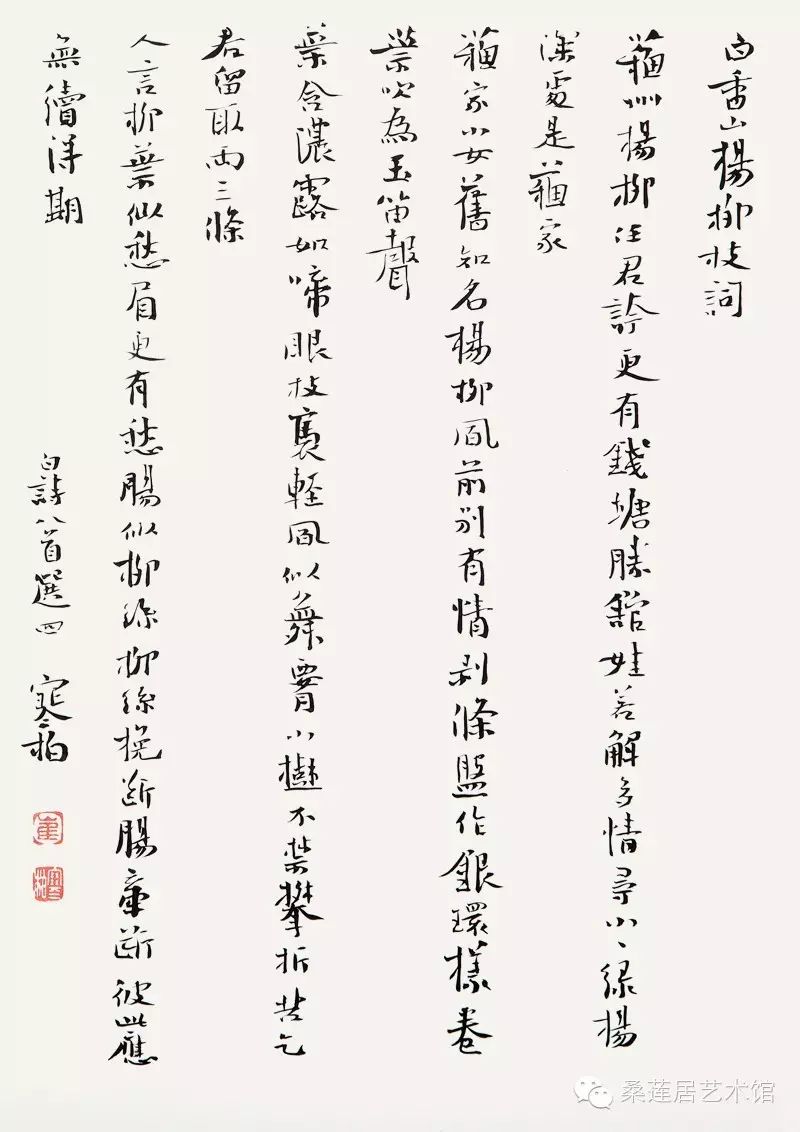 白香山楊柳枝詞
蘇州楊柳任君誇更有錢塘勝館娃若解多情尋小、綠楊
深處是蘇家
蘇家小女舊知名楊柳風前別有情剥條盤作銀環樣卷
葉吹為玉笛聲
葉含濃露如啼眼枝裊輕風似舞腰小樹不禁攀折苦乞
君留取兩三條
人言柳葉似愁眉更有愁腸似柳絲柳絲挽斷腸牽斷彼此應
無續得期
白詩八首選四 寒柏
桑莲居艺术馆